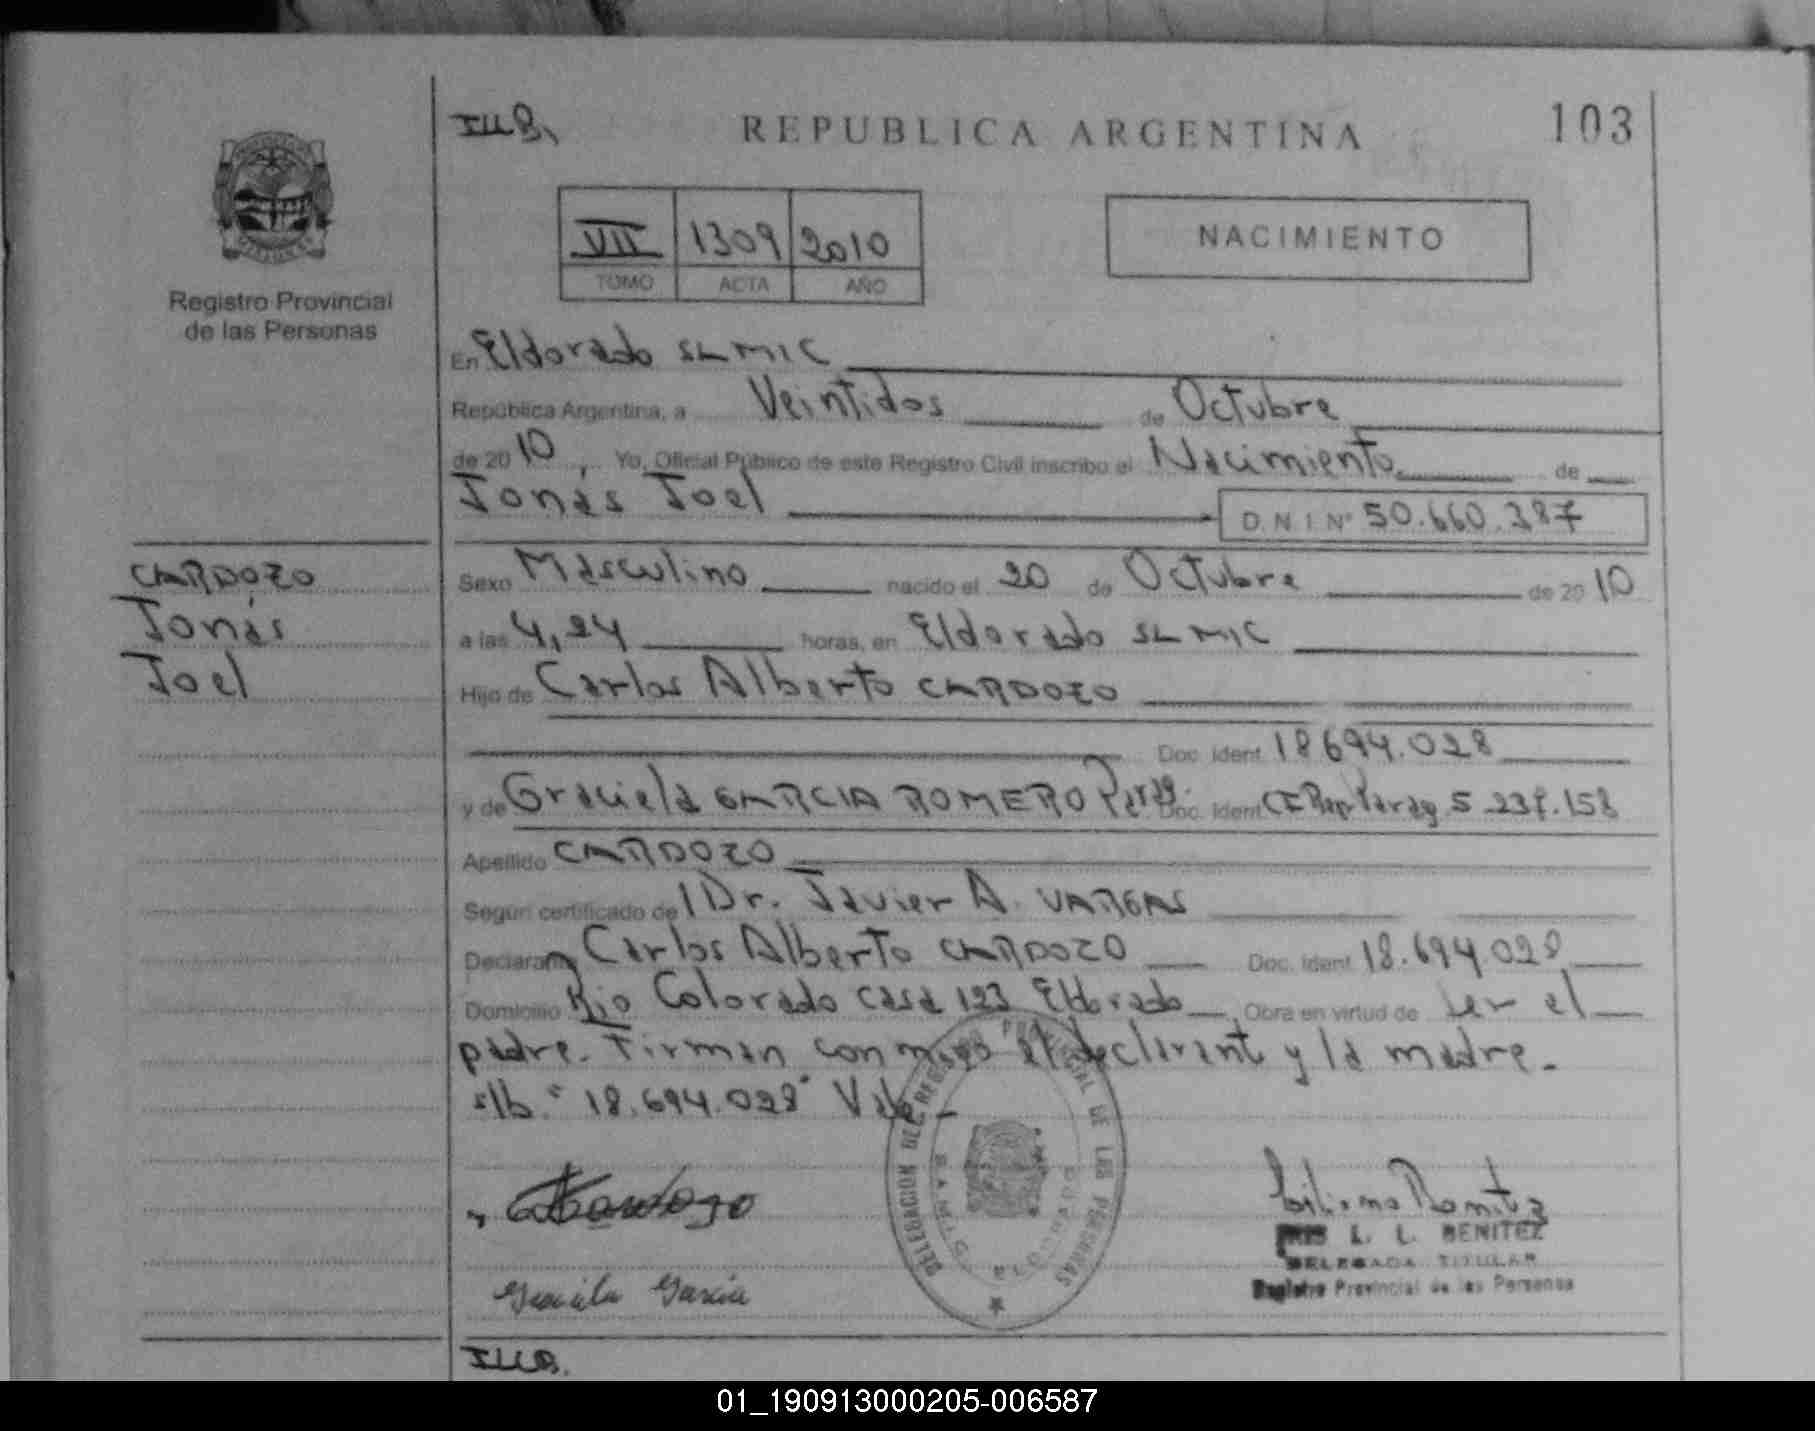 REPUBLICA ARGENTINA
103
VII 1309 2010
TOMO ACTA AÑO
NACIMIENTO
Registro Provincial
de las Personas
En Eldorado SLMIC
República Argentina, a Veintidos de Octubre
de 2010, Yo, Oficial Público de este Registro Civil inscribo el Nacimiento de
Jonás Joel D.N.I Nº 50.660.387
CARDOZO
Jonás
Joel
Sexo Masculino nacido el 20 de Octubre de 2010
a las 4,24 horas, en Eldorado SLMIC
Hijo de Carlos Alberto CARDOZO
Doc. Ident. 18694.028
y de Graciela GARCIA ROMERO Parag. Doc. Ident. CI Rep Parag 5.237.158
Apellido CARDOZO
Según certificado del Dr. Javier A. VARGAS
Declarante Carlos Alberto CARDOZO Doc. Ident. 18.694.028
Domicilio Rio Colorado casa 123 Eldorado Obra en virtud de ser el
padre. Firman conmigo el declarant y la madre.
s/b. "18.694.028" Vale
DELEGACION DEL REGISTRO PROVINCIAL DE LAS PERSONAS
Cardozo
Graciela Garcia
L. L. BENITEZ
DELEGADA TITULAR
Registro Provincial de las Personas
01_190913000205-006587